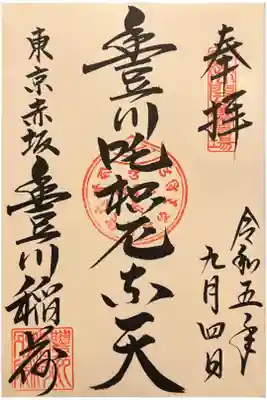 奉拝
令和五年
九月四日
豊川吒枳尼真天
東京赤坂
豊川稲荷